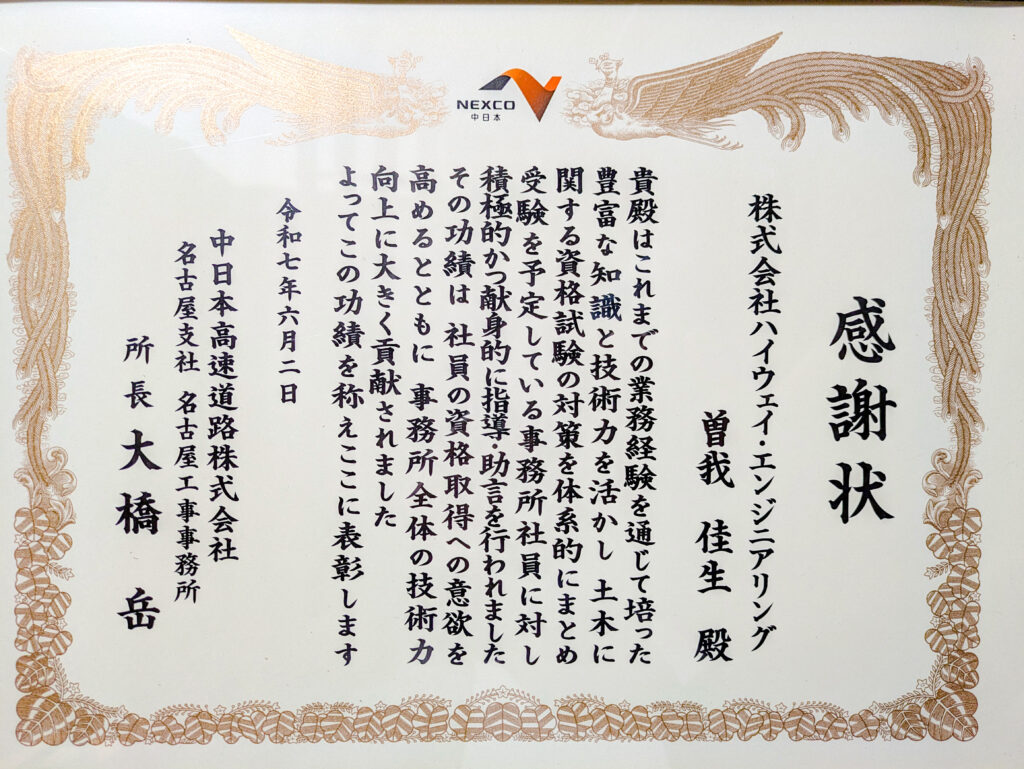 NEXCO
中日本
感謝状
株式会社ハイウェイ・エンジニアリング
曽我 佳生 殿
貴殿はこれまでの業務経験を通じて培った
豊富な知識と技術力を活かし 土木に
関する資格試験の対策を体系的にまとめ
受験を予定している事務所社員に対し
積極的かつ献身的に指導・助言を行われました
その功績は 社員の資格取得への意欲を
高めるとともに 事務所全体の技術力
向上に大きく貢献されました
よってこの功績を称えここに表彰します
令和七年六月二日
中日本高速道路株式会社
名古屋支社 名古屋工事事務所
所長 大橋 岳